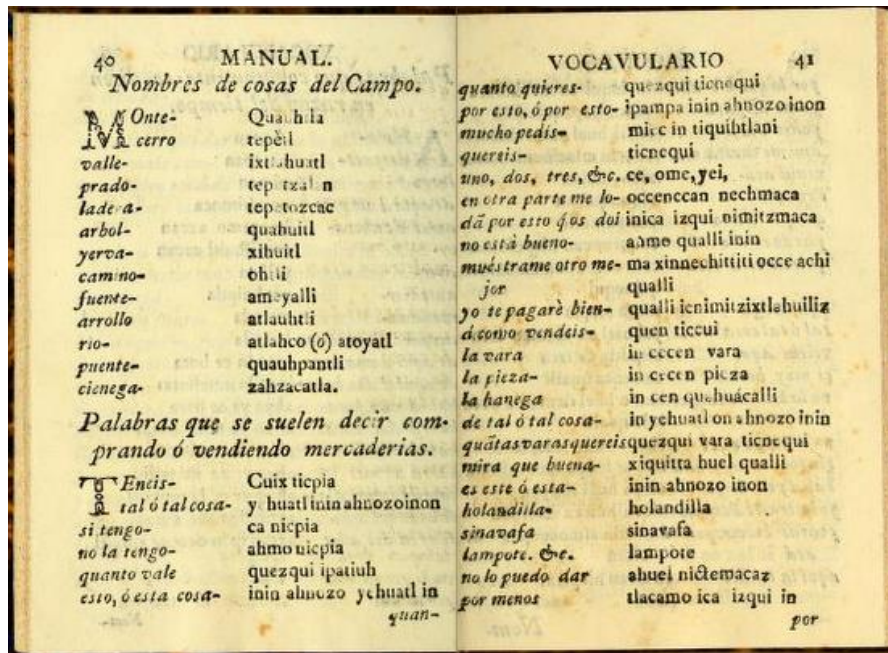 40 MANUAL.
Nombres de cosas del Campo.
MOnte- Quauhtla
cerro tepètl
valle- ixtlahuatl
prado- tep tzal n
lade a- tep tozcac
arbol- quahuitl
yerva- xihuitl
camino- ohtli
fuente- ameyalli
arrollo atlauhtli
rio- atlahco (ó) atoyatl
puente- quauhpantli
cienega- zahzacatla.
Palabras que se suelen decir com-
prando ó vendiendo mercaderias.
TEneis- Cuix ticpia
tal ó tal cosa- y huatl inin ahnozoinon
si tengo- ca nicpia
no la tengo- ahmo nicpia
quanto vale quezqui ipatiuh
esto, ó esta cosa- inin ahnozo yehuatl in
quan-
VOCAVULARIO 41
quanto quieres- quezqui ticnequi
por esto, ó por esto- ipampa inin ahnozo inon
mucho pedis- miec in tiquihtlani
quereis- ticnequi
uno, dos, tres, &c. ce, ome, yei,
en otra parte me lo- occenccan nechmaca
dã por esto q̃ os doi inica izqui nimitzmaca
no està bueno- ahmo qualli inin
muéstrame otro me- ma xinnechittiti occe achì
jor qualli
yo te pagarè bien- qualli ienimitzixtlahuiliz
á como vendeis- quen ticcui
la vara in cecen vara
la pieza- in cecen pieza
la hanega in cen quahuácalli
de tal ó tal cosa- in yehuatl on ahnozo inin
quãtas varas quereis quezqui vara ticnequi
mira que buena- xiquitta huel qualli
es este ó esta- inin ahnozo inon
holandilla- holandilla
sinavafa sinavafa
lampote. &c. lampote
no lo puedo dar ahuel nictemacaz
por menos tlacamo ica izqui in
por